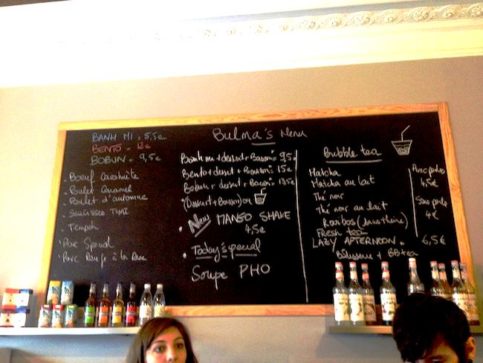 BANH MI : 5,5€
BENTO = 12€
BOBUN = 9,5€
Boeuf
Poulet Caramel
Poulet d'automne
Saucisse THAÏ
Tempeh
Porc Spécial
Porc Rouge à la
Bulma's Menu
Banh mi + dessert + Boisson = 9,5€
Bento + dessert + Boisson = 15€
Bobun + dessert + Boisson = 13,5€
New MANGO SHAKE
4,5€
Today's special
Soupe PHO
Bubble tea
Matcha
Matcha au lait
Thé noir
Thé noir au lait
Rooibos (sans théine)
Fresh tea
LAZY AFTERNOON =
+ BB tea
6,5€
Avec perles
4,5€
Sans perles
4€